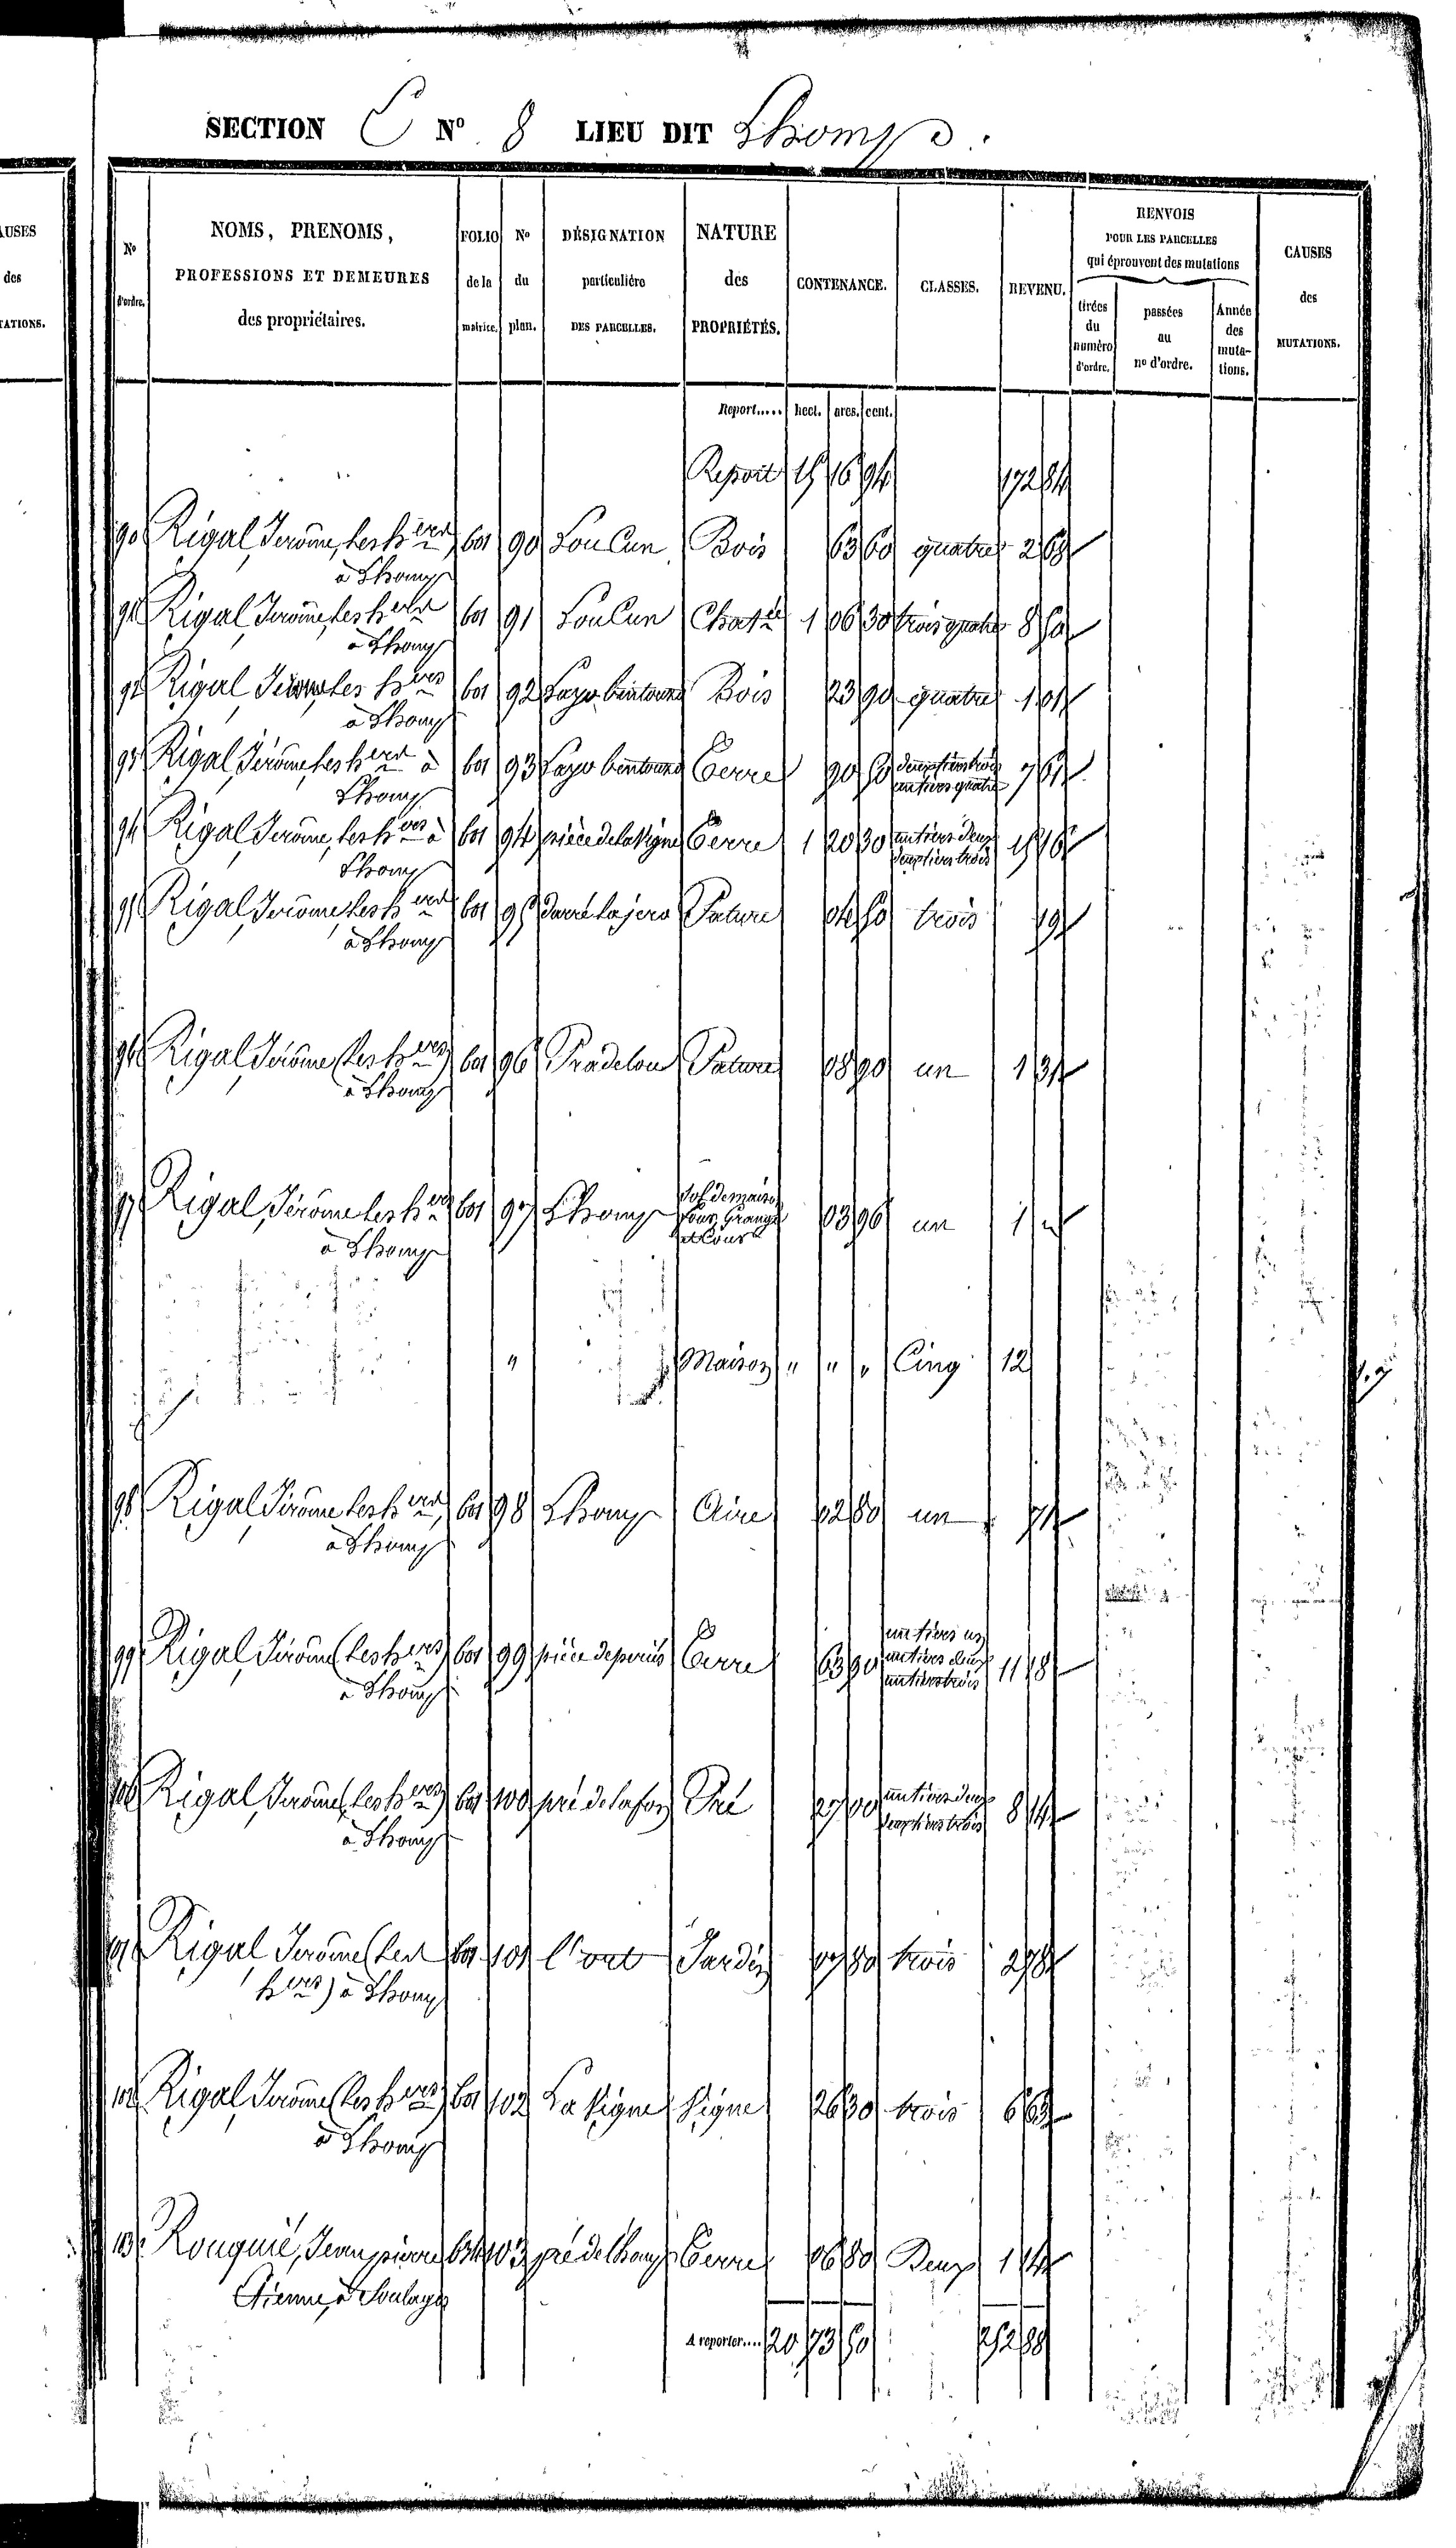 SECTION C N° 8 LIEU DIT Lhomp.
AUSES des TATIONS.
N° d'ordre. NOMS, PRENOMS, PROFESSIONS ET DEMEURES des propriétaires. FOLIO de la matrice. N° du plan. DÉSIGNATION particulière DES PARCELLES. NATURE des PROPRIÉTÉS. CONTENANCE. CLASSES. REVENU. RENVOIS POUR LES PARCELLES qui éprouvent des mutations tirées du numéro d'ordre. passées au n° d'ordre. Année des muta- tions. CAUSES des MUTATIONS.
Report..... hect. ares. cent.
Report 15 16 94 172 84
90 Rigal, Jerôme, les hers 601 90 Lou Cun Bois 63 60 quatre 2 68
à Lhomp
91 Rigal Jerôme, les hers 601 91 Lou Cun Chatie 1 06 30 trois quatre 8 50
à Lhomp
92 Rigal Jerôme, les hers 601 92 Bois 23 90 quatre 1 01
à Lhomp
93 Rigal, Jérôme, les hers à 601 93 Terre 90 50 deux tiers trois 7 61
Lhomp un tiers quatre
94 Rigal, Jerôme, les hers à 601 94 pièce de la Vigne Terre 1 20 30 un tiers deux 15 16
Lhomp deux tiers trois
95 Rigal, Jerôme les hers 601 95 Darré lajero Pature 04 50 trois 19
à Lhomp
96 Rigal, Jérôme (les hers) 601 96 Pradelou Pature 08 90 un 1 31
à Lhomp
97 Rigal, Jérôme les hers 601 97 Lhomp Sol de maison Four, Grange et Cour 03 96 un 1
à Lhomp
" Maison " " " Cinq 12
98 Rigal Jérôme les hers, 601 98 Lhomp Aire 02 80 un 71
à Lhomp
99 Rigal, Jérôme (les hers) 601 99 Terre 63 90 un tiers un un tiers deux un tiers trois 11 18
à Lhomp
100 Rigal, Jerôme, (les hers) 601 100 pré de lafon Pré 27 00 un tiers deux deux tiers trois 8 14
à Lhomp
101 Rigal, Jerôme (les 601 101 l'ort Jardin 07 80 trois 2 78
hers) à Lhomp
102 Rigal, Jerôme (les hers) 601 102 La Vigne Vigne 26 30 trois 6 63
à Lhomp
103 Rouquié, Jean pierre 634 103 pré de Lhomp Terre 06 80 Deux 1 14
Etienne, à Soulages
A reporter.... 20 73 50 252 88